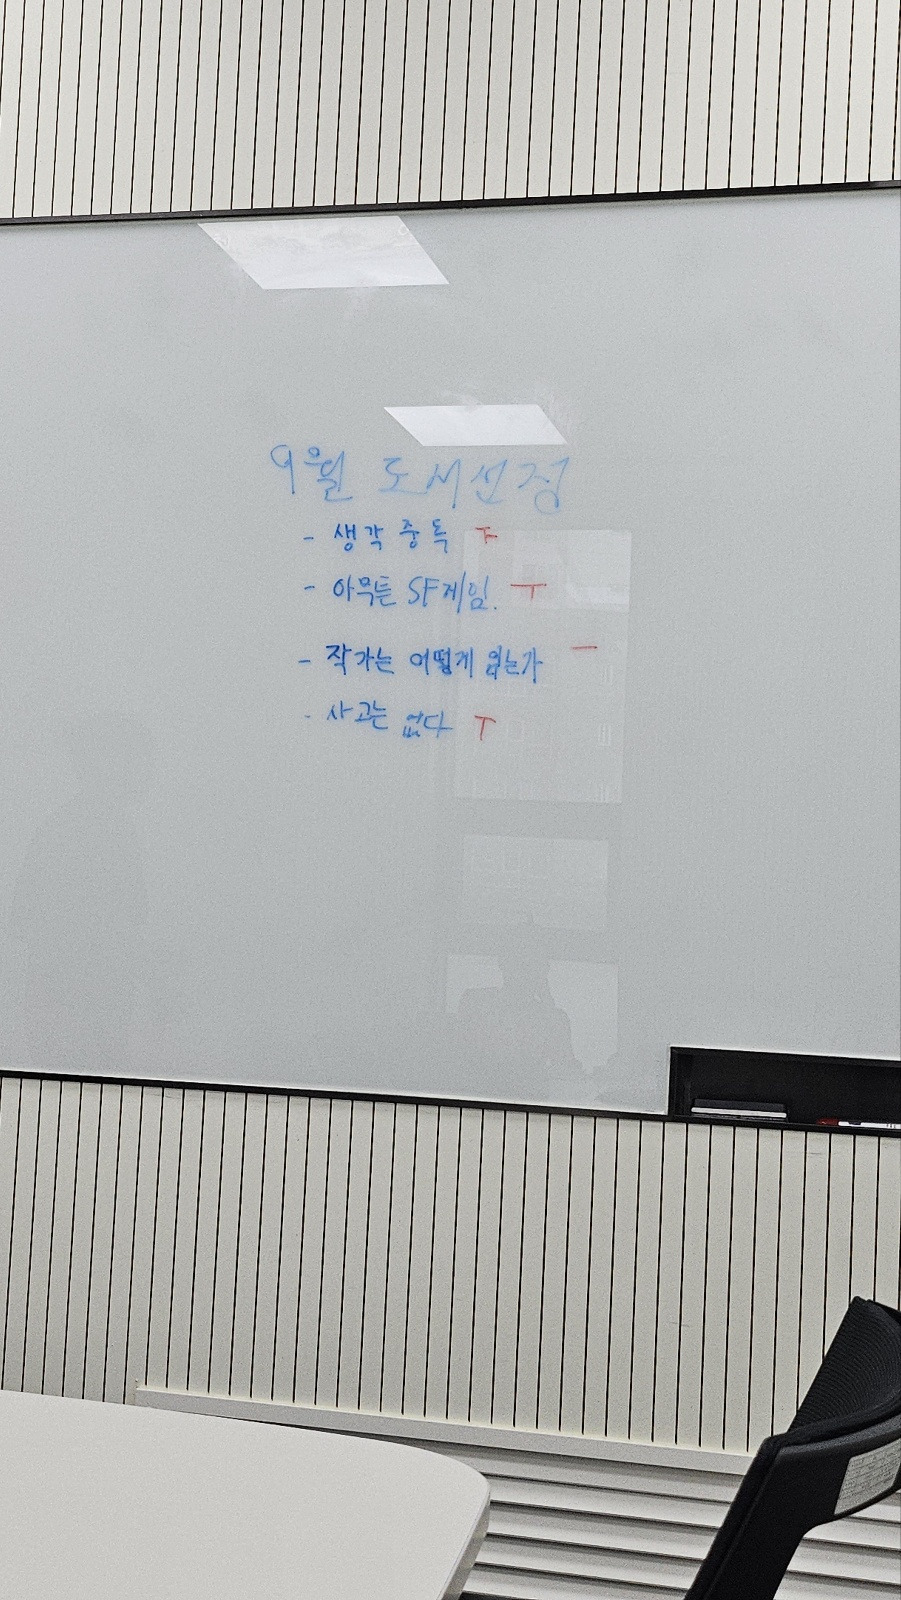 9월 도서선정
- 생각 중독
- 아무튼 SF게임.
- 작가는 어떻게 읽는가
- 사고는 없다